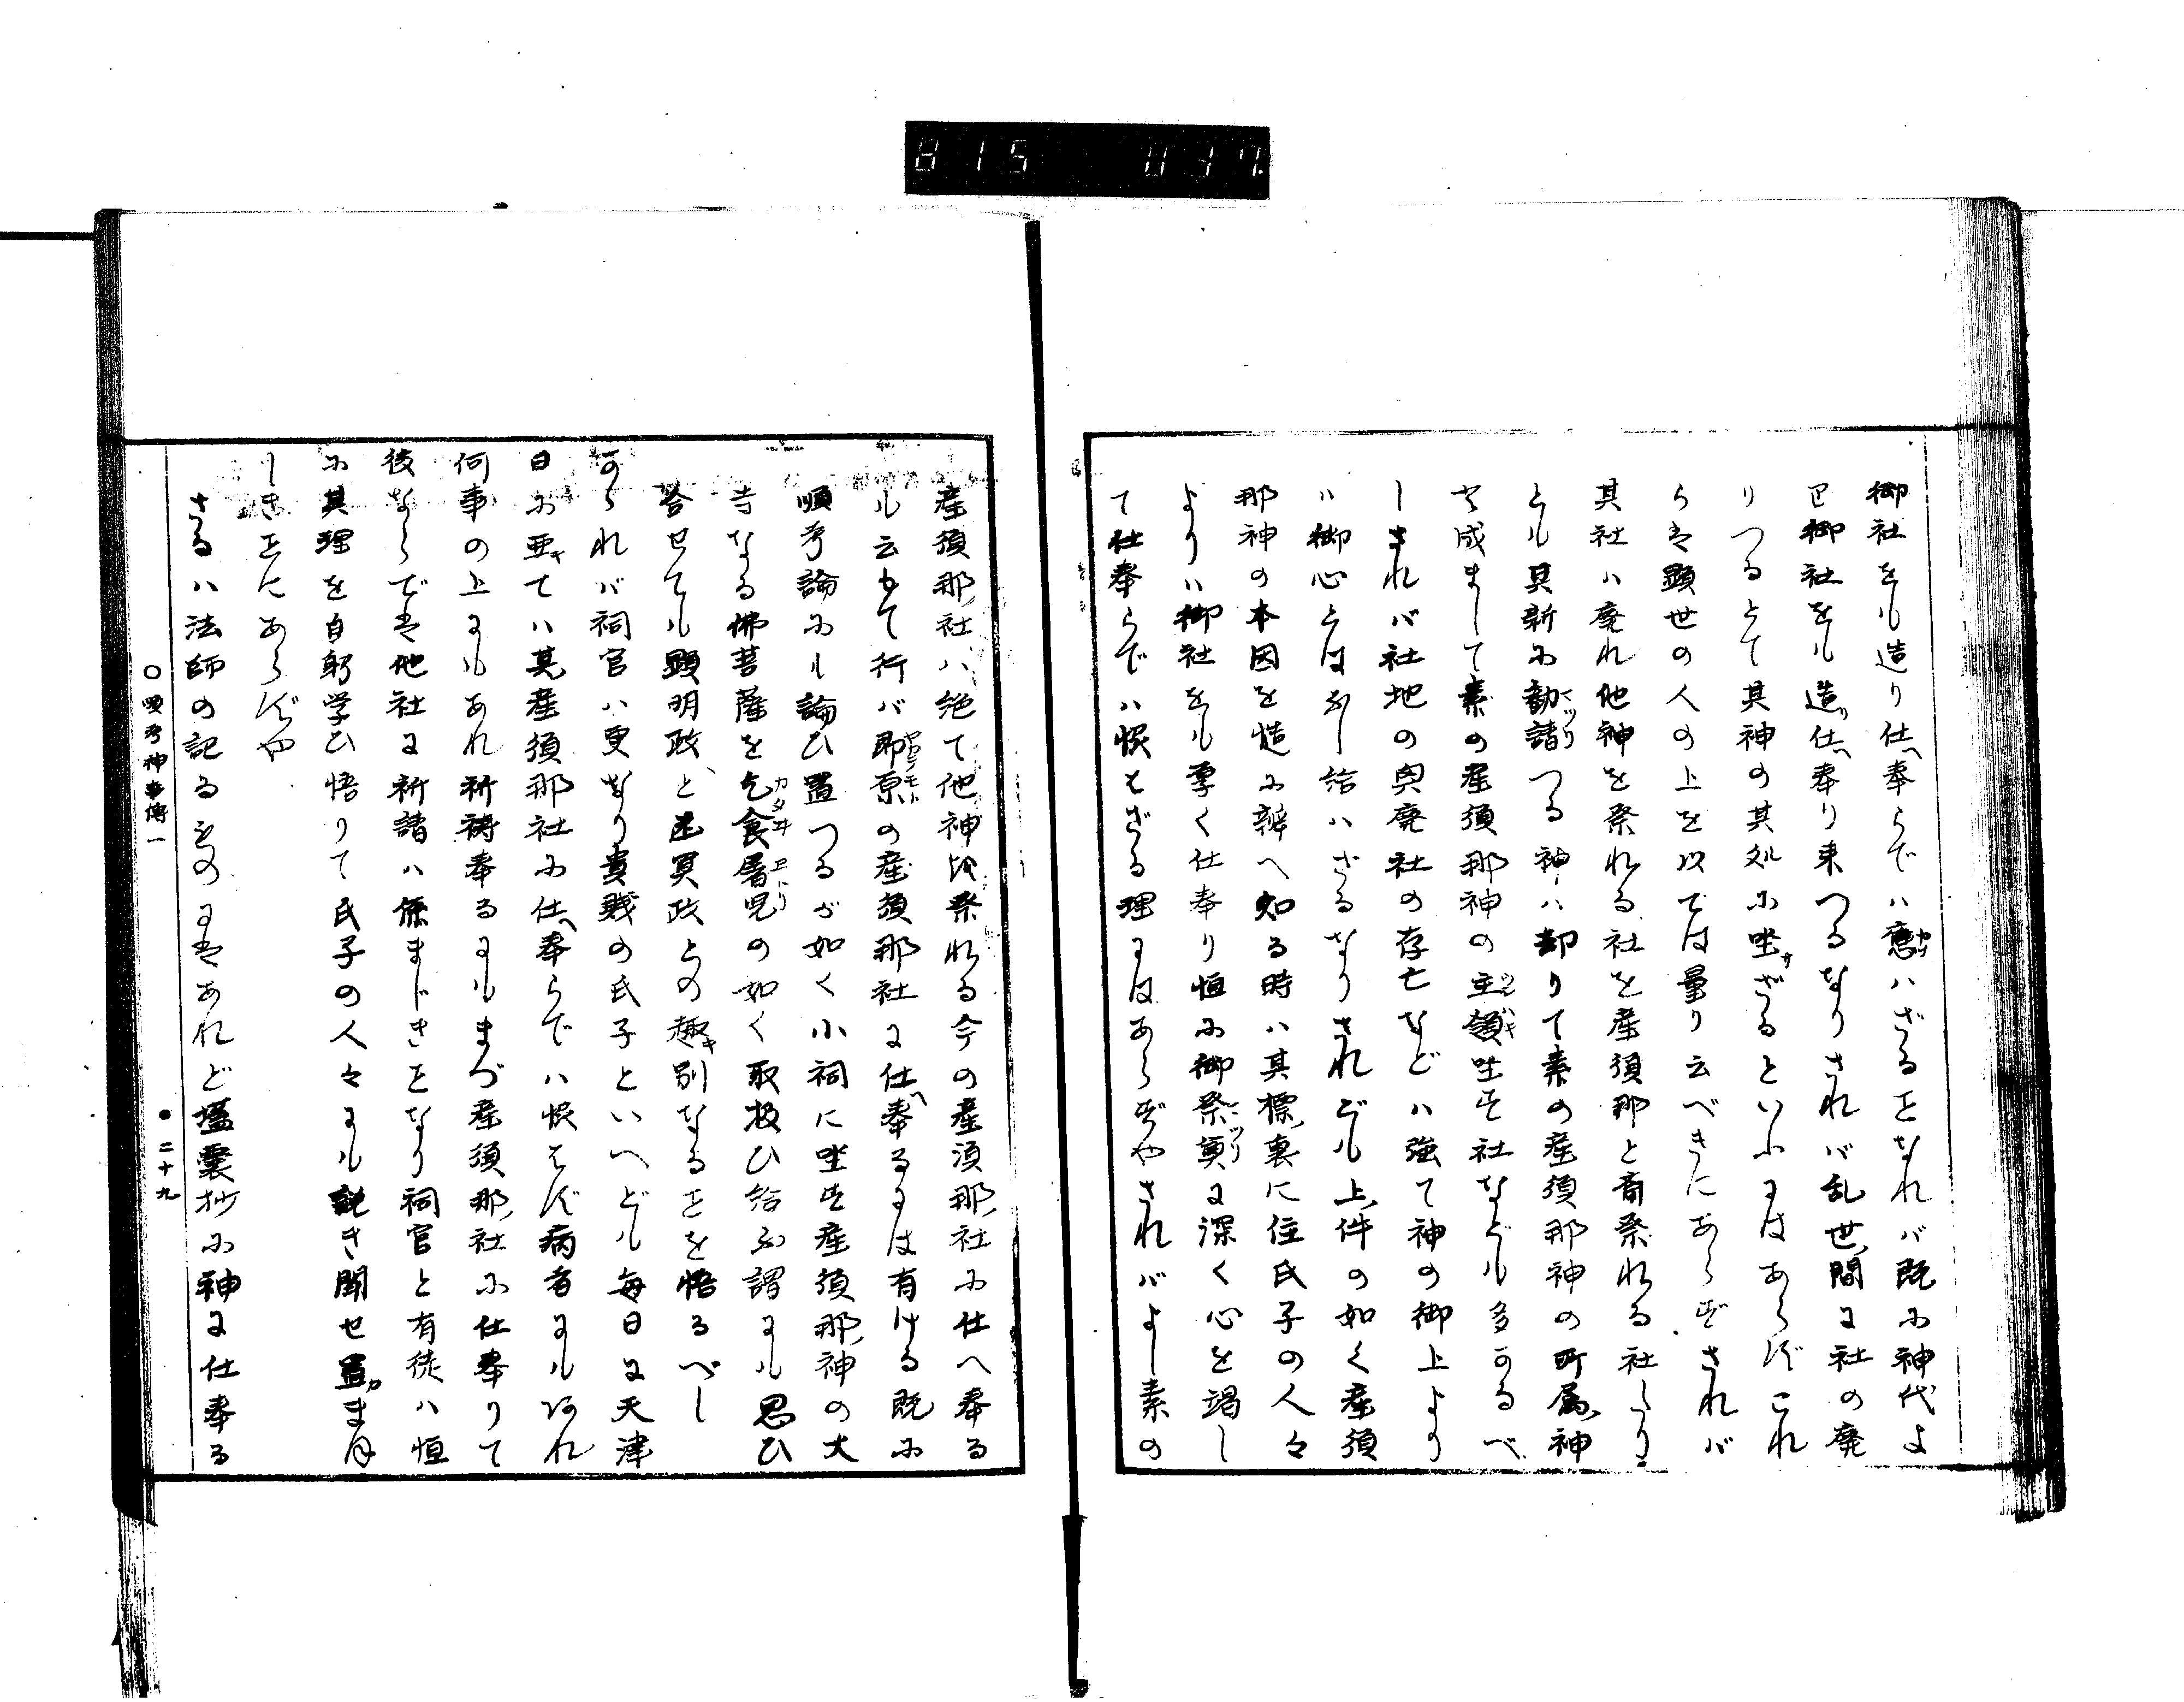 御社をも造り仕へ奉らでハ応ハざるをなれバ既に神代よ
り御社をも造り仕へ奉り来つるなりされバ乱世間に社の廃
りつるとて其神の其処に坐ざるといふにはあらずこれ
らは顕世の人の上を以ては量り云べきにあらずされバ
其社ハ廃れ他神を祭れる社を産須那と斎祭れる社たり
とも其新に勧請つる神ハ却りて素の産須那神の所属神
と成まして素の産須那神の主領坐す社なども多かるべ
しされバ社地の興廃社の存亡などハ強て神の御上より
ハ御心とはなし給ハざるなりされども上件の如く産須
那神の本因を慥に辨へ知る時ハ其標裏に住氏子の人々
よりハ御社をも厚く仕奉り恒に御祭奠に深く心を竭し
て仕奉らでハ恨はざる理にはあらずやさればよし素の
産須那社ハ絶て他神を祭れる今の産須那社に仕へ奉る
も云もて行バ即原の産須那社に仕へ奉るには有ける既に
順考論にも論ひ置つるが如く小祠に坐す産須那神の大
寺なる佛菩薩を乞食屠児の如く取扱ひ給ふ謂にも思ひ
合せても顕明政と幽冥政との趣別なるをを悟るべし
かゝれバ祠官ハ更なり貴賤の氏子といへども毎日に天津
日に亜てハ其産須那社に仕へ奉らでハ恨はず病者にもあれ
何事の上にもあれ祈祷奉るにもまづ産須那社に仕奉りて
後ならでは他社に祈請ハ係まじきをなり祠官と有徒ハ恒
に其理を自躬学ひ悟りて氏子の人々にも説き聞せ置まほ
しきをにあらずや
さるハ法師の記るものにはあれど壒嚢抄に神に仕奉る
〇順考神事傳一
●二十九